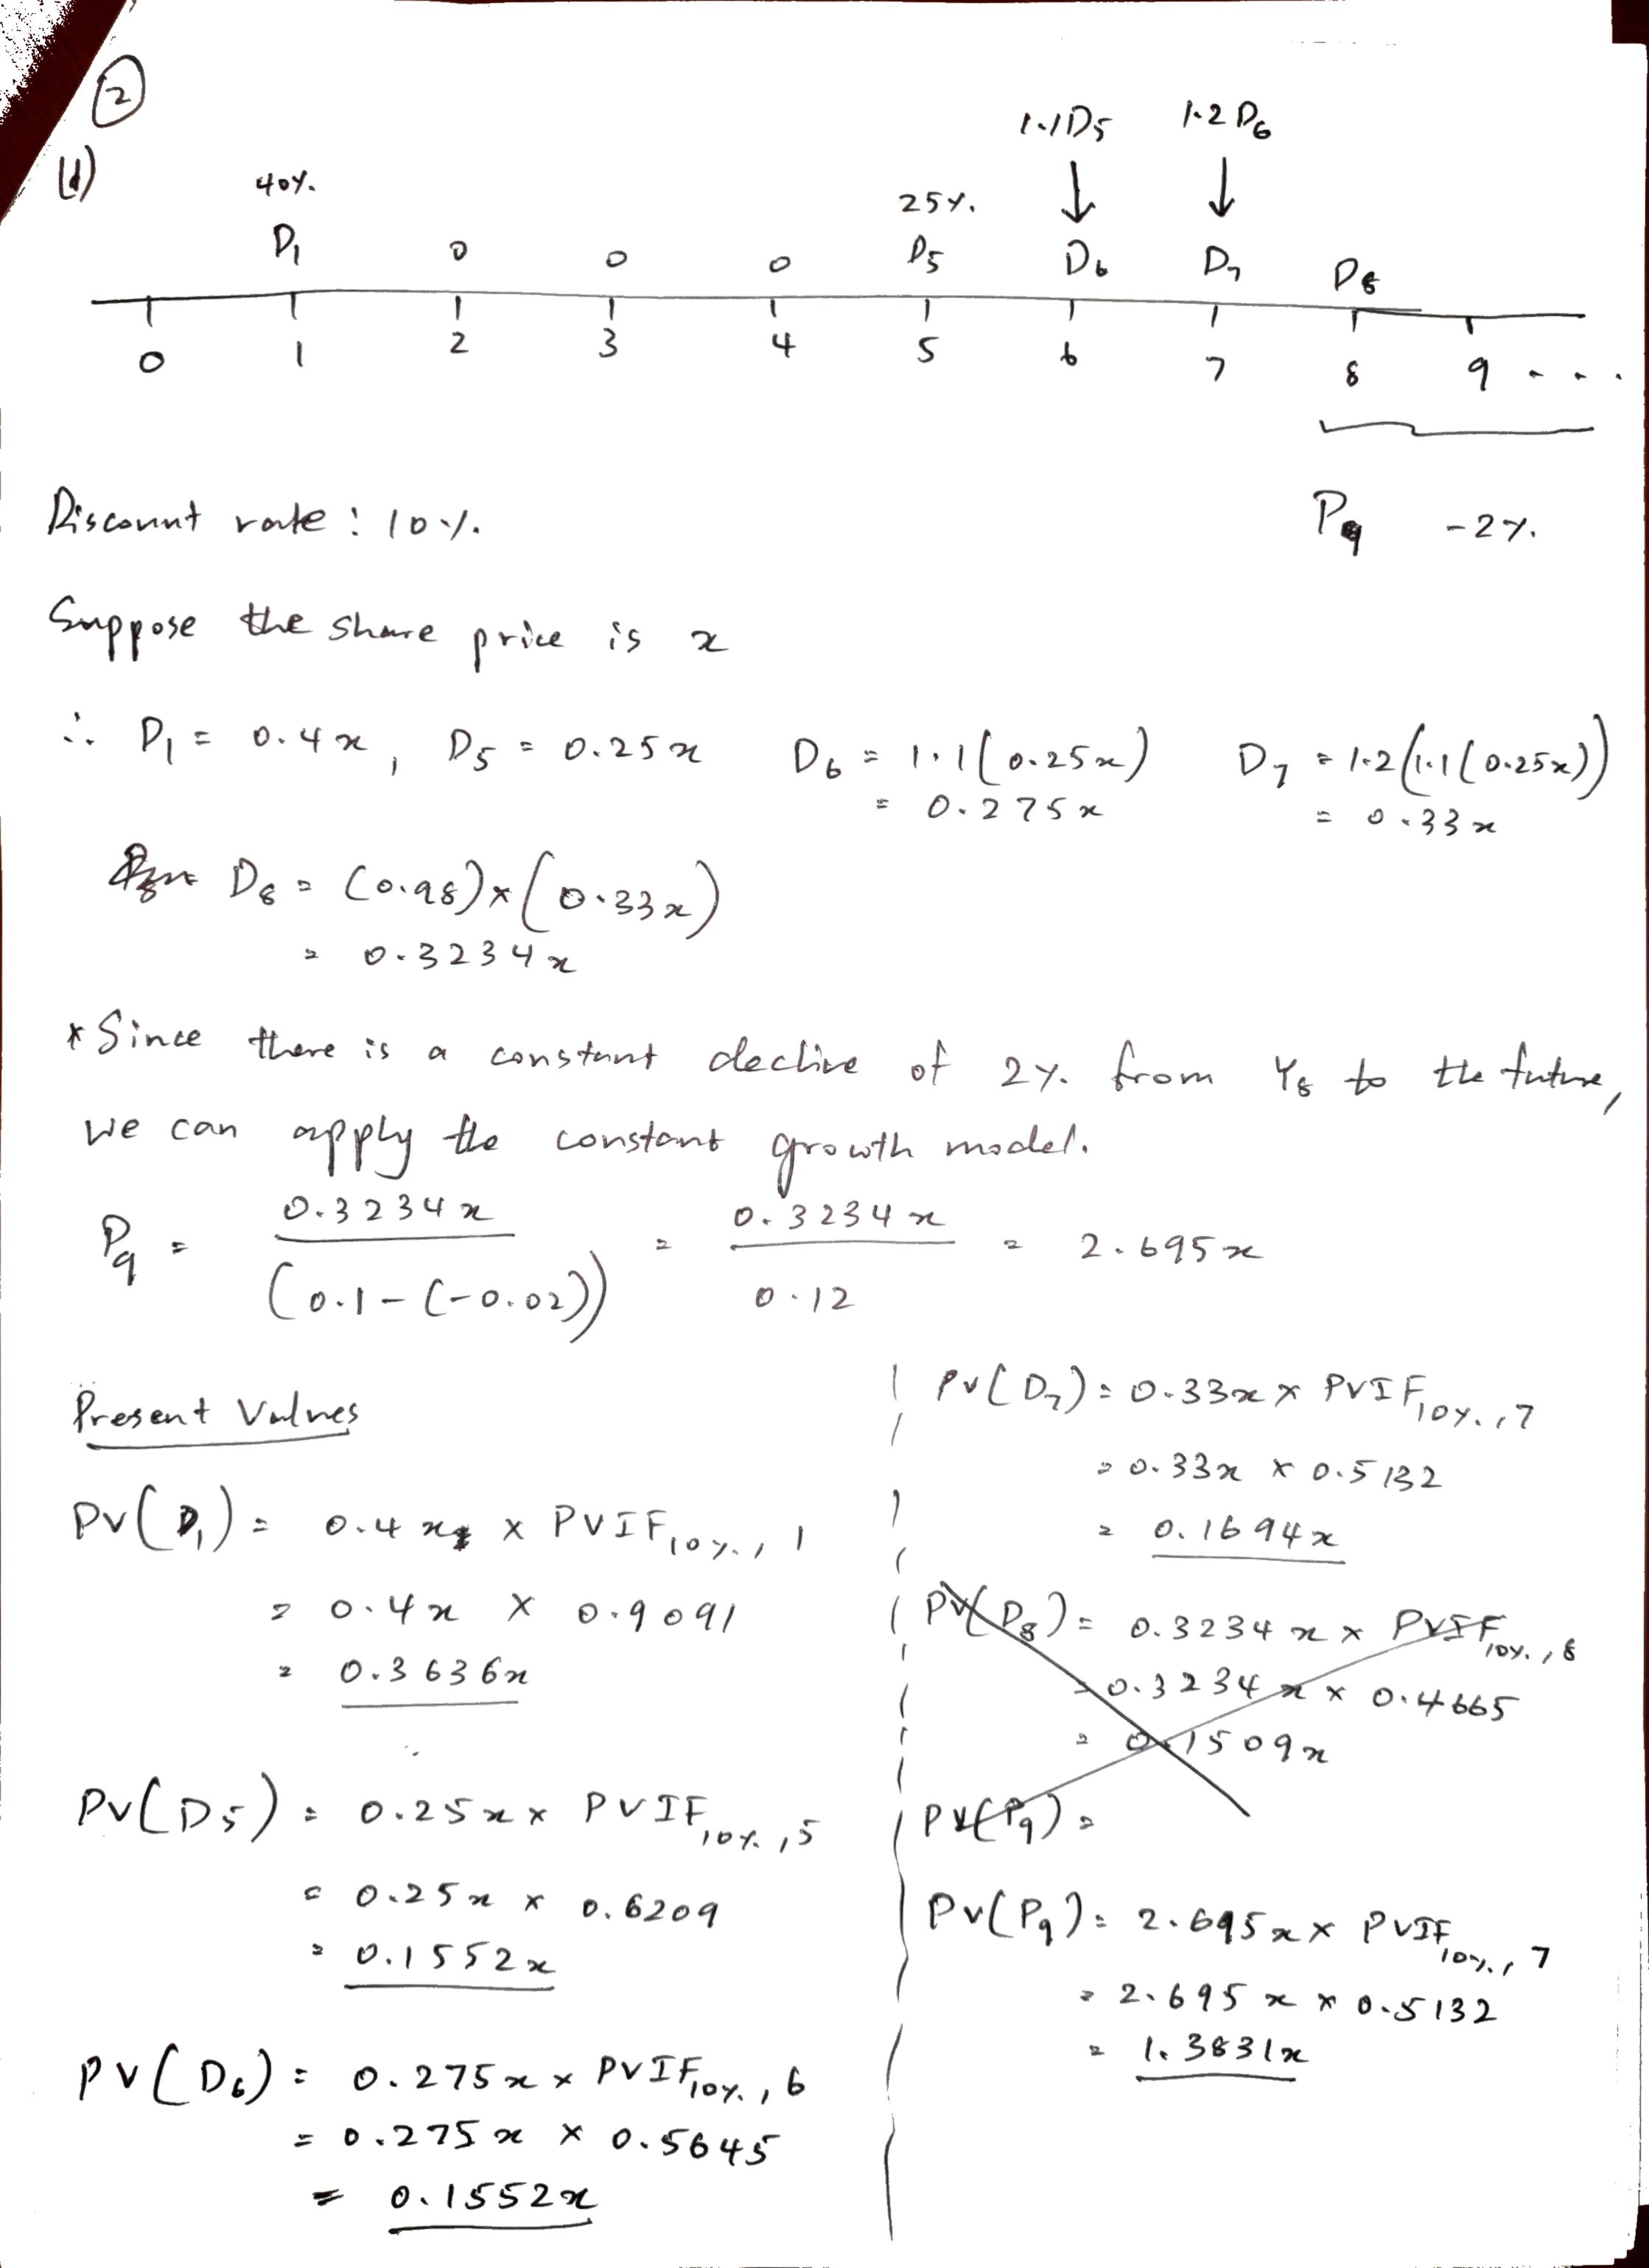 ②
(1)
1.1D5 1.2D6
↓ ↓
40%. 25%.
D1 0 0 0 D5 D6 D7 D8
0 1 2 3 4 5 6 7 8 9 ...
Discount rate : 10%.
P9 -2%.
Suppose the share price is x
∴ D1 = 0.4x, D5 = 0.25x D6 = 1.1(0.25x) D7 = 1.2(1.1(0.25x))
= 0.275x = 0.33x
D8 = (0.98)x(0.33x)
= 0.3234x
* Since there is a constant decline of 2%. from Y8 to the future,
we can apply the constant growth model.
P9 = 0.3234x / (0.1-(-0.02)) = 0.3234x / 0.12 = 2.695x
Present Values
PV(D1) = 0.4x x PVIF10%., 1
= 0.4x x 0.9091
= 0.3636x
PV(D5) = 0.25x x PVIF10%., 5
= 0.25x x 0.6209
= 0.1552x
PV(D6) = 0.275x x PVIF10%., 6
= 0.275x x 0.5645
= 0.1552x
PV(D7) = 0.33x x PVIF10%., 7
= 0.33x x 0.5132
= 0.1694x
PV(D8) = 0.3234x x PVIF10%., 8
= 0.3234x x 0.4665
= 0.1509x
PV(P9) =
PV(P9) = 2.695x x PVIF10%., 7
= 2.695x x 0.5132
= 1.3831x